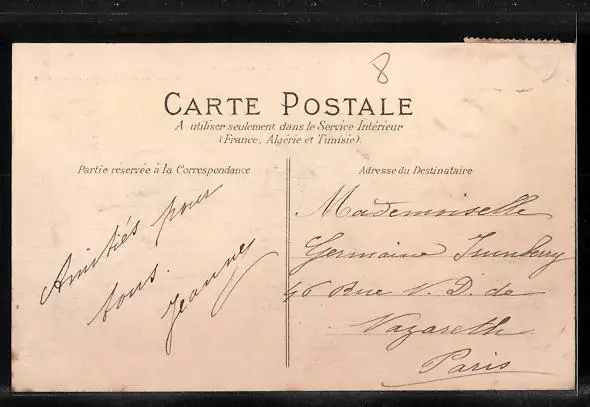 8
CARTE POSTALE
A utiliser seulement dans le Service Intérieur
(France, Algérie et Tunisie)
Partie réservée à la Correspondance
Amitiés pour
tous.
Jeanne
Adresse du Destinataire
Mademoiselle
Germaine
46 Rue N. D. de
Nazareth
Paris